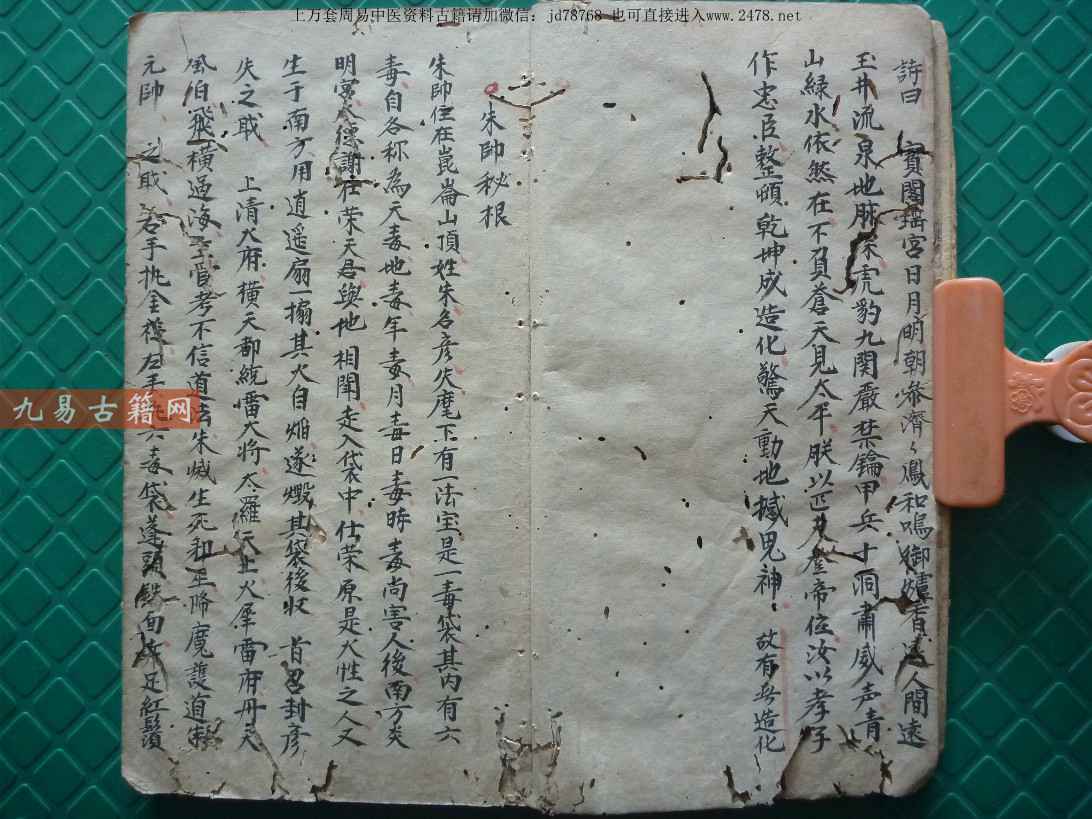 上万套周易中医资料古籍请加微信：jd78768 也可直接进入www.2478.net
詩曰 寶閣瑤宮日月明朝參濟〻鳳和鳴御爐香遠人間遠
玉井流泉地脉深虎豹九関嚴禁鑰甲兵十洞肅威声青
山緑水依然在不負蒼天見太平朕以匹夫登帝位汝以孝子
作忠臣整頓乾坤成造化驚天動地撼鬼神 故有此造化
朱帥秘根
朱帥住在崑崙山頂姓朱名彦失麾下有一法宝是一毒袋其内有六
毒自各称為天毒地毒年毒月毒日毒時毒尚害人後南方炎
明宮大德謝仕荣天君與地相聞走入袋中仕荣原是火性之人又
生于南方用逍遥扇一搧其火自焔遂燬其袋後収 首召封彦
失之職 上清大府横天都統雷大将太羅天上火犀雷府丹天
風伯飛横過海 管考不信道法朱滅生死和王降魔護道
元帥 之職 右手执金 左手 六毒袋蓬頭銕面 足紅鬚
九易古籍网